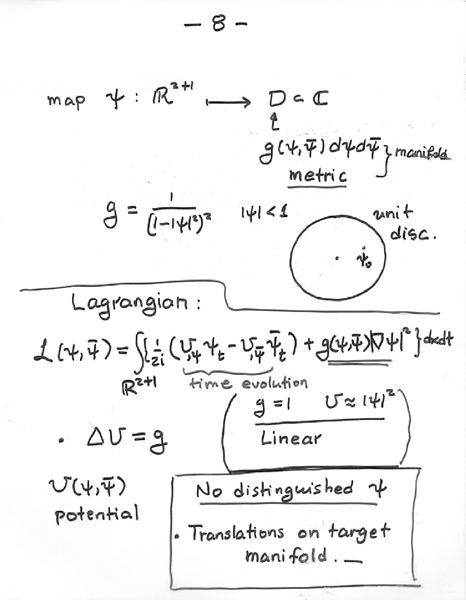 – 8 –
map ψ : ℝ²⁺¹ ⟼ D ⊂ ℂ
g(ψ,ψ̄)dψdψ̄ } manifold
metric
g = 1/(1-|ψ|²)² |ψ| < 1 unit
disc.
ψ₀
Lagrangian :
ℒ(ψ,ψ̄) = ∫{1/2i (υ,ψ ψt – υ,ψ̄ ψ̄t) + g(ψ,ψ̄)|∇ψ|²} dxdt
ℝ²⁺¹ time evolution
g = 1 υ ≈ |ψ|²
Linear
• Δυ = g
υ(ψ,ψ̄)
potential
No distinguished ψ
• Translations on target
manifold. —